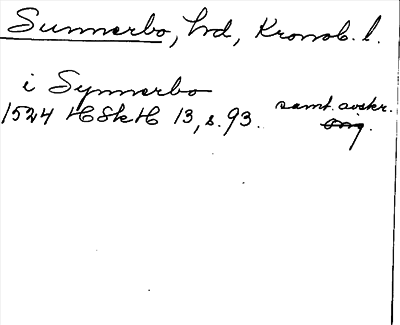 Sunnerbo, hd, Kronob. l.
i Synnerbo
samt. avskr.
1524 HSkH 13, s. 93. orig.